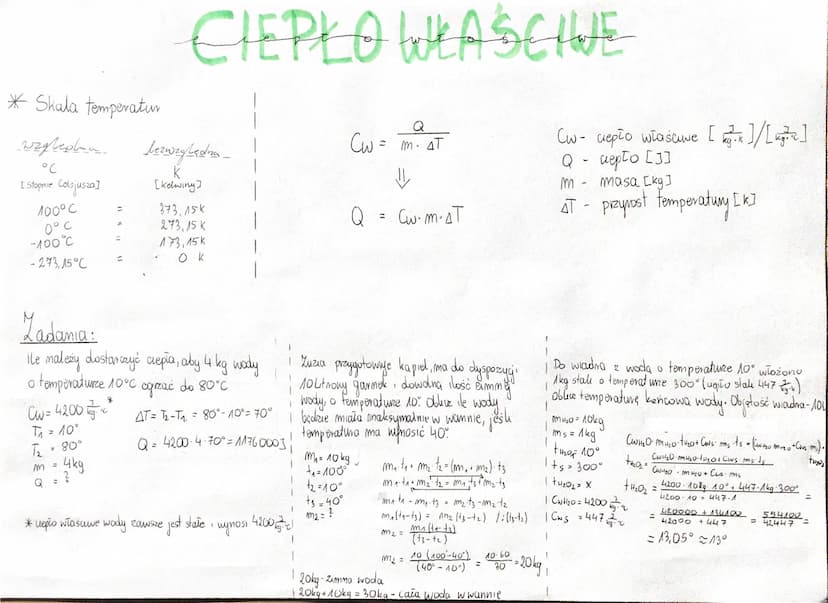 CIEPŁO WŁAŚCIWE
ciepło właściwe
* Skala temperatur
względna bezwzględna
°C K
[stopnie Celsjusza] [kelwiny]
100°C = 373,15K
0°C = 273,15K
-100°C = 173,15K
-273,15°C = 0 K
Cw = Q / m·ΔT
⇓
Q = Cw·m·ΔT
Cw - ciepło właściwe [J/kg·K]/[J/kg·°C]
Q - ciepło [J]
m - masa [kg]
ΔT - przyrost temperatury [K]
Zadania:
Ile należy dostarczyć ciepła, aby 4 kg wody
o temperaturze 10°C ogrzać do 80°C
Cw = 4200 J/kg·°C *
T₁ = 10°
T₂ = 80°
m = 4kg
Q = ?
ΔT = T₂-T₁ = 80°-10° = 70°
Q = 4200·4·70° = 1176000J
* ciepło właściwe wody zawsze jest stałe i wynosi 4200 J/kg·°C
Zuzia przygotowuje kąpiel, ma do dyspozycji
10 Litrowy garnek i dowolną ilość zimnej
wody, o temperaturze 10°. Oblicz ile wody
będzie miała maksymalnie w wannie, jeśli
temperatura ma wynosić 40°.
m₁ = 10kg
t₁ = 100°
t₂ = 10°
t₃ = 40°
m₂ = ?
m₁t₁ + m₂t₂ = (m₁+m₂)·t₃
m₁t₁ + m₂t₂ = m₁t₃ + m₂t₃
m₁t₁ - m₁t₃ = m₂t₃ - m₂t₂
m₁(t₁-t₃) = m₂(t₃-t₂) /:(t₃-t₂)
m₂ = m₁(t₁-t₃) / (t₃-t₂)
m₂ = 10(100°-40°) / (40°-10°) = 10·60 / 30 = 20kg
20kg - zimna woda
20kg + 10kg = 30kg - cała woda w wannie
Do wiadra z wodą o temperaturze 10° włożono
1kg stali o temperaturze 300° (ciepło stali 447 J/kg·°C)
Oblicz temperaturę końcową wody. Objętość wiadra - 10L
mH₂O = 10kg
ms = 1kg
tH₂O₁ = 10°
ts = 300°
tH₂O₂ = x
CwH₂O = 4200 J/kg·°C
Cws = 447 J/kg·°C
CwH₂O·mH₂O·tH₂O + Cws·ms·ts = (CwH₂O·mH₂O + Cws·ms)·tH₂O₂
tH₂O₂ = CwH₂O·mH₂O·tH₂O + Cws·ms·ts / CwH₂O·mH₂O + Cws·ms
tH₂O₂ = 4200·10kg·10° + 447·1kg·300° / 4200·10 + 447·1 =
= 420000 + 134100 / 42000 + 447 = 554100 / 42447 =
= 13,05° ≈ 13°